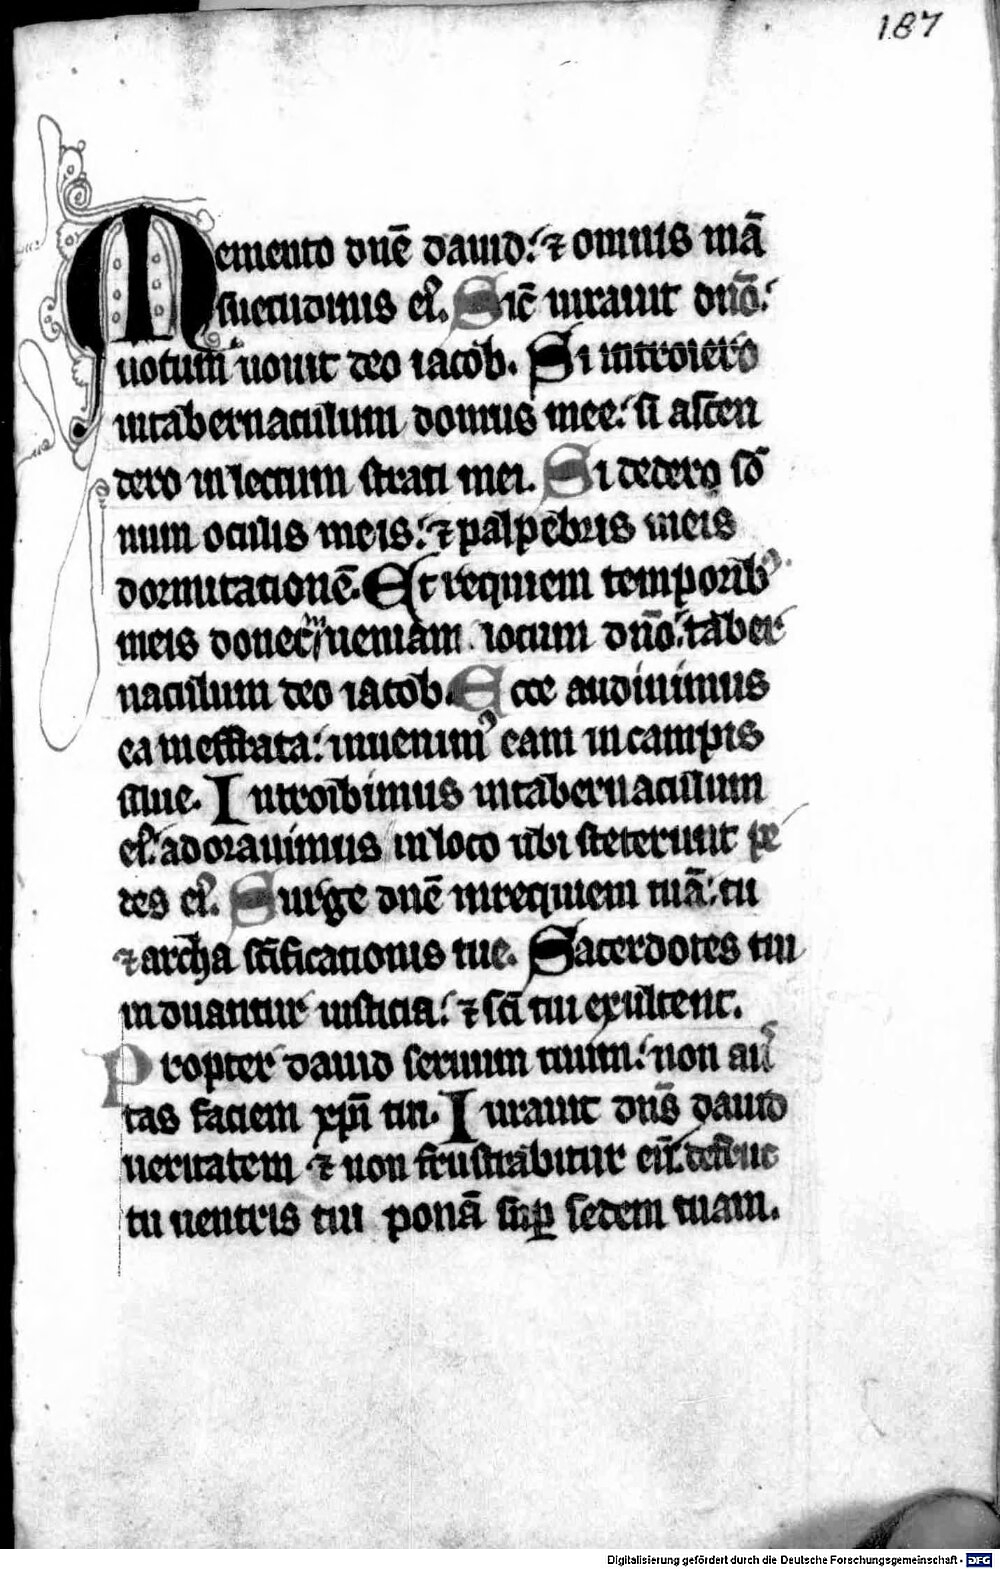 187
Memento dn̄e dauid: ⁊ omnis mā
suetudinis eꝰ. Sic̄ iurauit dn̄o:
uotum uouit deo iacob. Si introiero
in tabernaculum domus mee: si ascen
dero in lectum strati mei. Si dedero sō
num oculis meis: ⁊ palpebris meis
dormitationē. Et requiem temporibꝰ
meis donec inueniam locum dn̄o: taber
naculum deo iacob. Ecce audiuimus
ea in effrata: inuenimꝰ eam in campis
silue. Introibimus in tabernaculum
eꝰ: adorauimus in loco ubi steterunt pe
des eꝰ. Surge dn̄e in requiem tuā: tu
⁊ archa sc̄ificationis tue. Sacerdotes tui
induantur iusticia: ⁊ sc̄i tui exultent.
Propter dauid seruum tuum: non au
tas faciem xp̄i tui. Iurauit dn̄s dauid
ueritatem ⁊ non frustrabitur eū: de fruc
tu uentris tui ponā sup̄ sedem tuam.
Digitalisierung gefördert durch die Deutsche Forschungsgemeinschaft - DFG